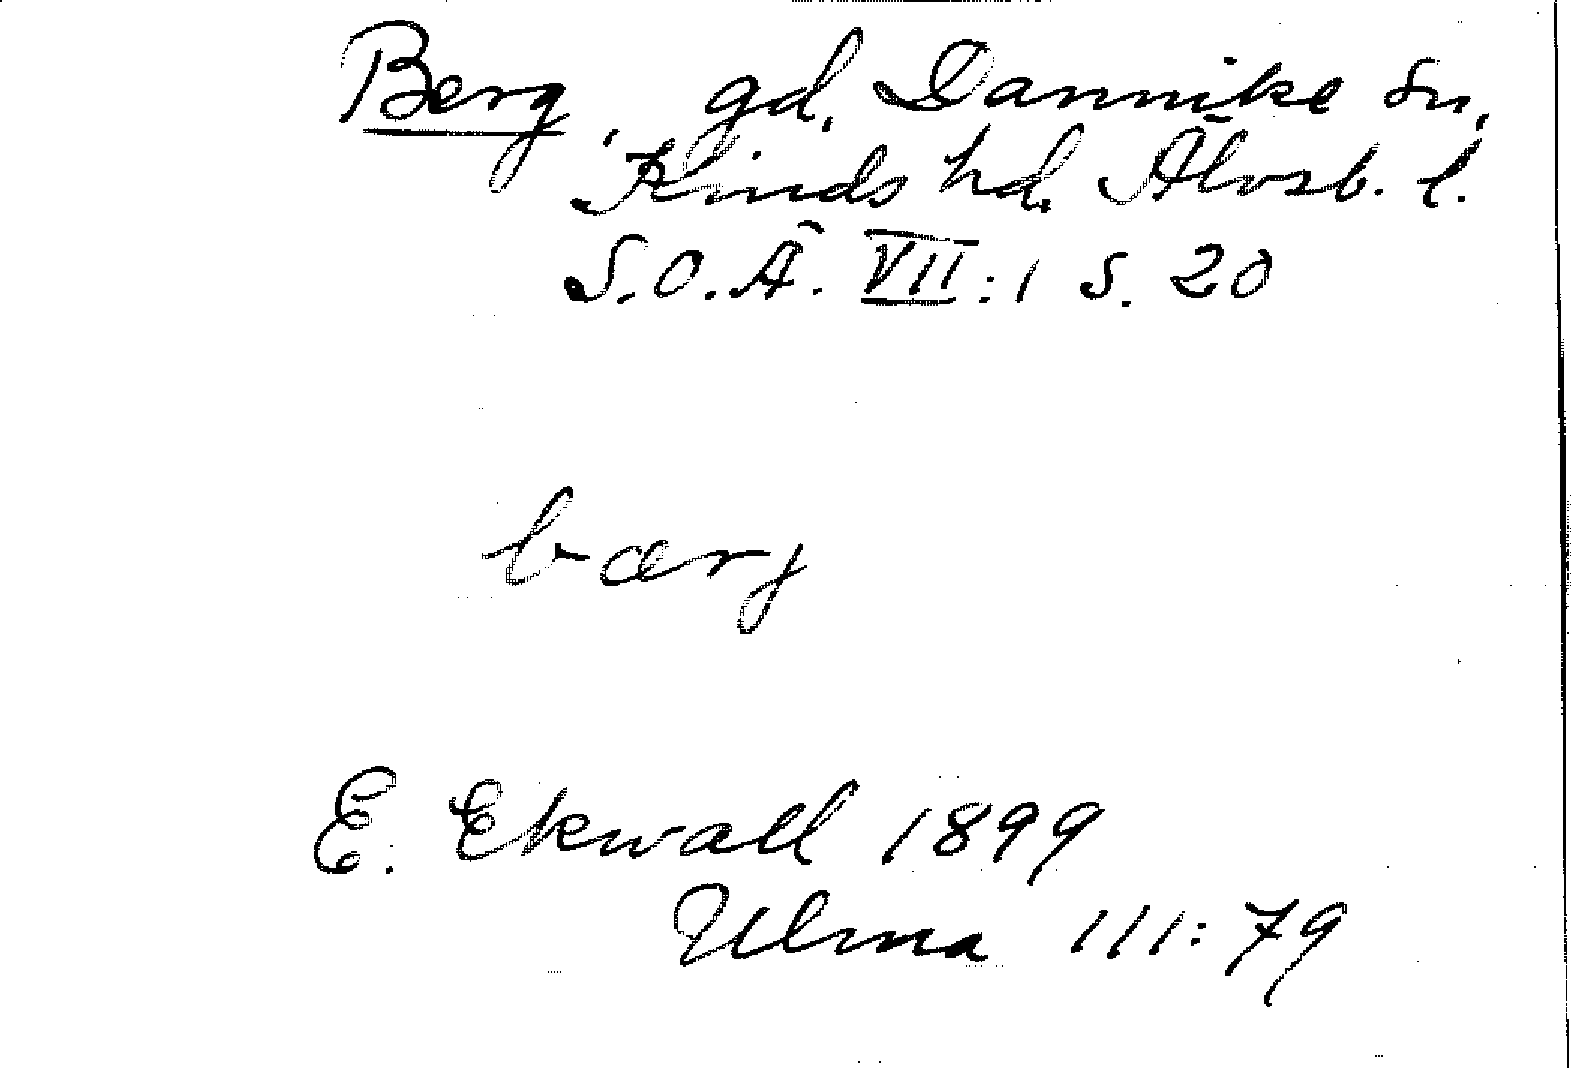 Berg, gd, Dannike sn,
Kinds hd, Älvsb. l.
S.O.Ä. VII:1 s. 20
bærj
E. Ekwall 1899
Ulma 111:79